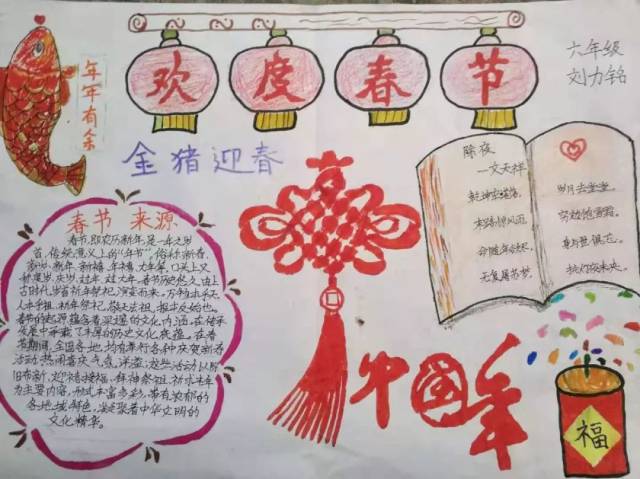 欢度春节
六年级
刘力铭
年年有余
金猪迎春
春节 来源
春节,即农历新年,是一年之岁
首、传统意义上的"年节"。俗称新春、
新岁、新年、新禧、年禧、大年等,口头上又
称度岁、庆岁、过年、过大年。春节历史悠久,由上
古时代岁首祈年祭祀演变而来。万物本乎天、
人本乎祖,祈年祭祀、敬天法祖,报本反始也。
春节的起源蕴含着深邃的文化内涵,在传承
发展中承载了丰厚的历史文化底蕴。在春
节期间,全国各地均有举行各种庆贺新春
活动,热闹喜庆气氛洋溢;这些活动以除
旧布新、迎禧接福、拜神祭祖、祈求丰年
为主要内容,形式丰富多彩,带有浓郁的
各地域特色,凝聚着中华文明的
文化精华。
除夜
一文天祥
乾坤空落落,
岁月去堂堂。
末路惊风雨,
穷边饱雪霜。
命随年欲尽,
身与世俱忘。
无复屠苏梦,
挑灯夜未央。
中国年
福